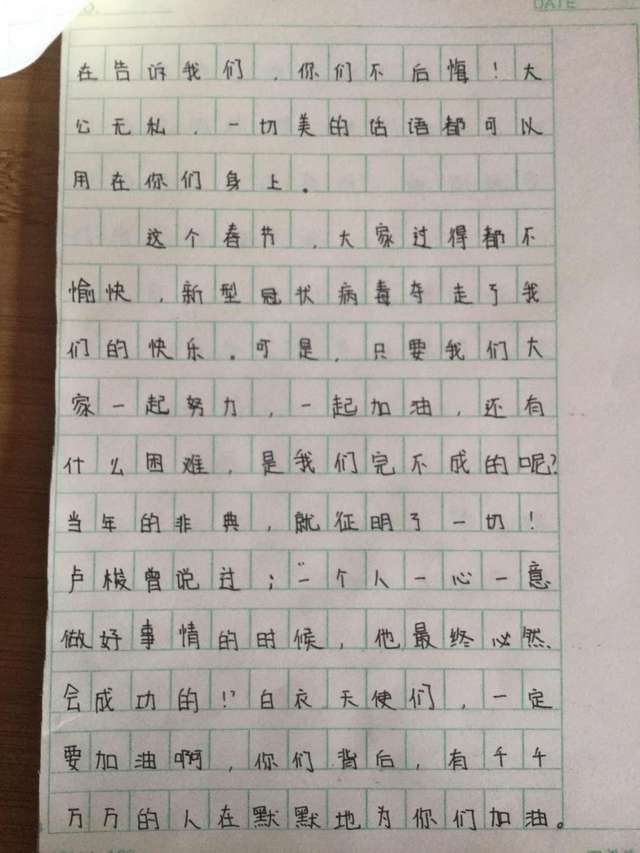 DATE
在告诉我们，你们不后悔！大
公无私，一切美的估语都可以
用在你们身上。
这个春节，大家过得都不
愉快，新型冠状病毒夺走了我
们的快乐。可是，只要我们大
家一起努力，一起加油，还有
什么困难，是我们完不成的呢？
当年的非典，就征明了一切！
卢梭曾说过：“一个人一心一意
做好事情的时候，他最终必然
会成功的！”白衣天使们，一定
要加油啊，你们背后，有千千
万万的人在默默地为你们加油。